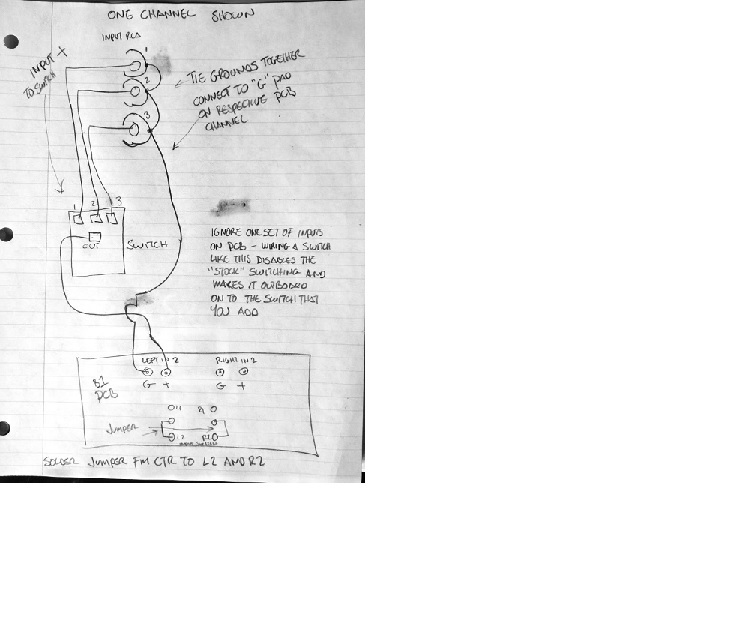 ONE CHANNEL SHOWN
INPUT RCA
INPUT +
TO SWITCH
1
2
3
TIE GROUNDS TOGETHER
CONNECT TO "G" PAD
ON RESPECTIVE PCB
CHANNEL
1 2 3
OUT
SWITCH
IGNORE ONE SET OF INPUTS
ON PCB - WIRING A SWITCH
LIKE THIS DISABLES THE
"STOCK" SWITCHING AND
MAKES IT OUTBOARD
ON TO THE SWITCH THAT
YOU ADD
LEFT IN 2 RIGHT IN 2
B1
PCB
G + G +
JUMPER
SOLDER JUMPER FM CTR TO L2 AND R2